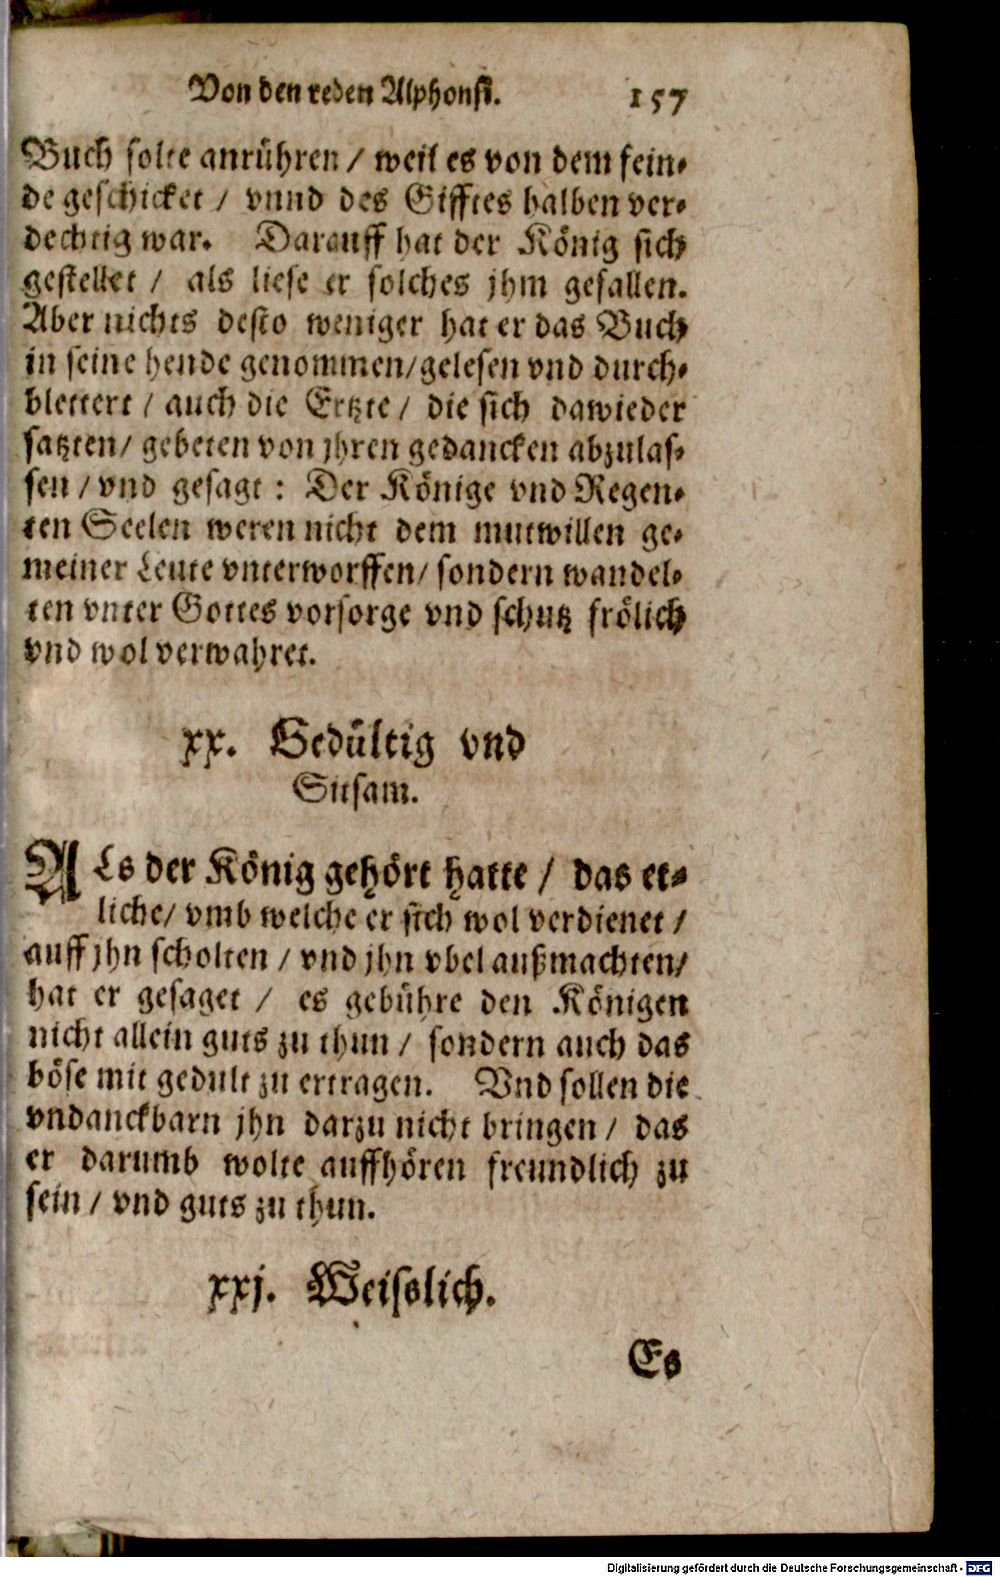 Von den reden Alphonsi. 157
Buch solte anrühren / weil es von dem fein-
de geschicket / vnnd des Gifftes halben ver-
dechtig war. Darauff hat der König sich
gestellet / als liese er solches jhm gefallen.
Aber nichts desto weniger hat er das Buch
in seine hende genommen/gelesen vnd durch-
blettert / auch die Ertzte / die sich dawieder
satzten/ gebeten von jhren gedancken abzulas-
sen / vnd gesagt : Der Könige vnd Regen-
ten Seelen weren nicht dem mutwillen ge-
meiner Leute vnterworffen/ sondern wandel-
ten vnter Gottes vorsorge vnd schutz frölich
vnd wol verwahret.
xx. Gedültig vnd
Sitsam.
ALs der König gehört hatte / das et-
liche/ vmb welche er sich wol verdienet /
auff jhn scholten / vnd jhn vbel außmachten/
hat er gesaget / es gebühre den Königen
nicht allein guts zu thun / sondern auch das
böse mit gedult zu ertragen. Vnd sollen die
vndanckbarn jhn darzu nicht bringen / das
er darumb wolte auffhören freundlich zu
sein / vnd guts zu thun.
xxj. Weislich.
Es
Digitalisierung gefördert durch die Deutsche Forschungsgemeinschaft - DFG